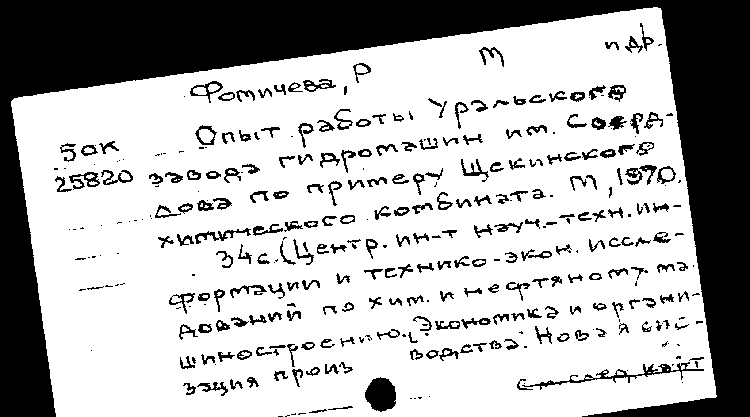 Фомичева, Р М и др.
50к Опыт работы Уральского
25820 завода гидромашин им.
дова по примеру Щекинского
химического комбината. М, 1970.
34с. (Центр. ин-т науч.-техн. ин-
формации и технико-экон. иссле-
дований по хим. и нефтяному ма
шиностроению. Экономика и органи-
зация произ водства. Новая сис-
См. след. карт